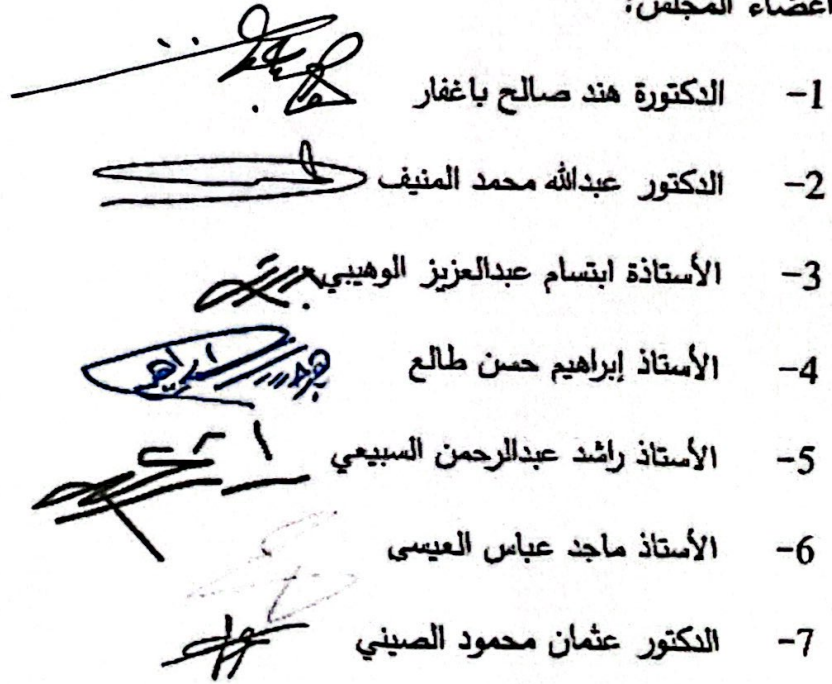 أعضاء المجلس:
1- الدكتورة هند صالح باغفار
2- الدكتور عبدالله محمد المنيف
3- الأستاذة ابتسام عبدالعزيز الوهيبي
4- الأستاذ إبراهيم حسن طالع
5- الأستاذ راشد عبدالرحمن السبيعي
6- الأستاذ ماجد عباس العيسى
7- الدكتور عثمان محمود الصيني